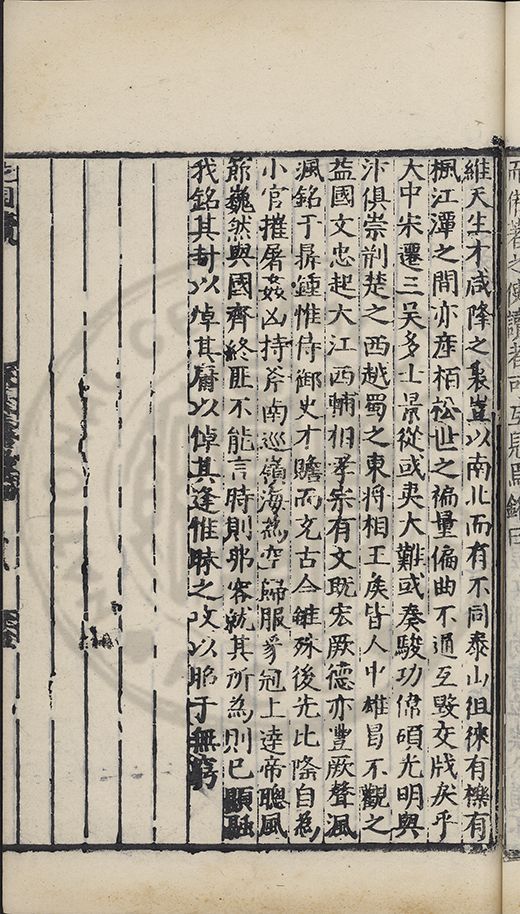 維天生才咸降之衷豈以南北而有不同泰山徂徠有櫟有
楓江潭之間亦產栢松世之褊量偏曲不通互毀交戕矣乎
大中宋遷三吳多士景從或夷大難或奏駿功偉碩光明與
汴俱崇荊楚之西越蜀之東將相王矦皆人中雄曷不觀之
益國文忠起大江西輔相孝宗有文既宏厥德亦豐厥聲渢
渢銘于鼎鍾惟侍御史才贍而充古今雖殊後先比隆自為
小官摧屠姦凶持斧南巡嶺海為空歸服豸冠上達帝聰風
節巍然與國齊終匪不能言時則弗容就其所為則已顯融
我銘其封以焯其庸以倬其逢惟昧之攻以昭于無窮